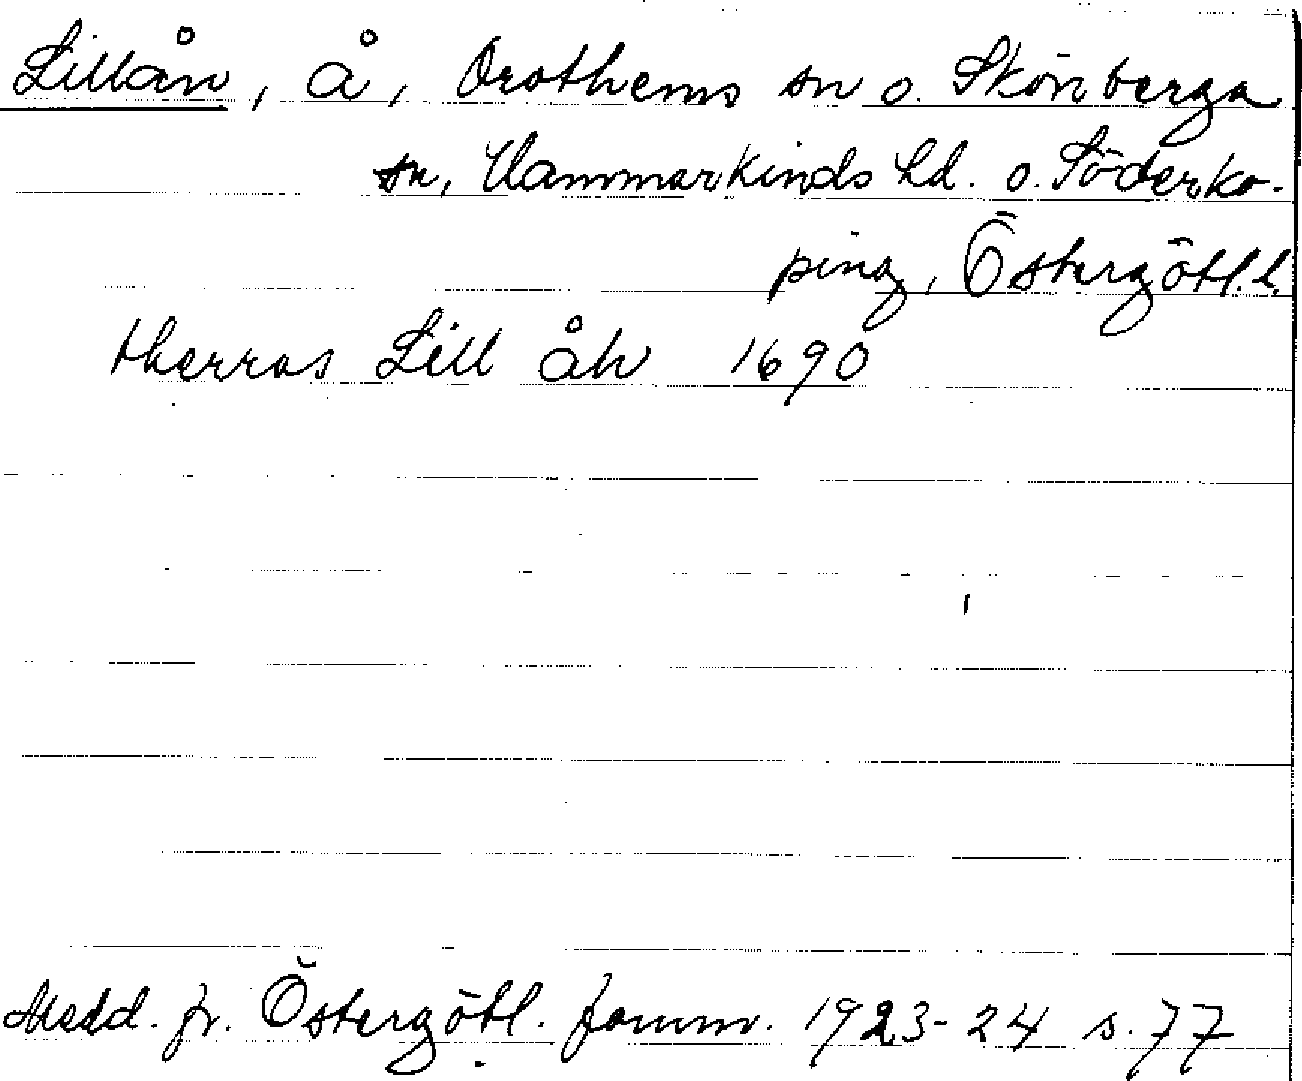 Lillån, å, Drothems sn o. Skönberga
sn, Hammarkinds hd. o. Söderkö-
ping, Östergötl. l.
therras Lill åh 1690
Medd. fr. Östergötl. fornm. 1923-24 s. 77